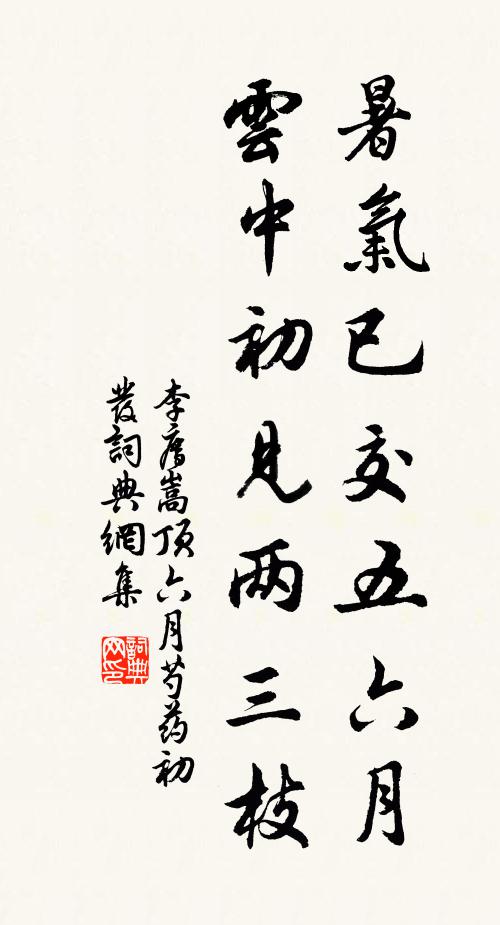 暑氣已交五六月
雲中初見两三枝
李廌嵩頂六月芍药初
發詞典網集
詞典
网印